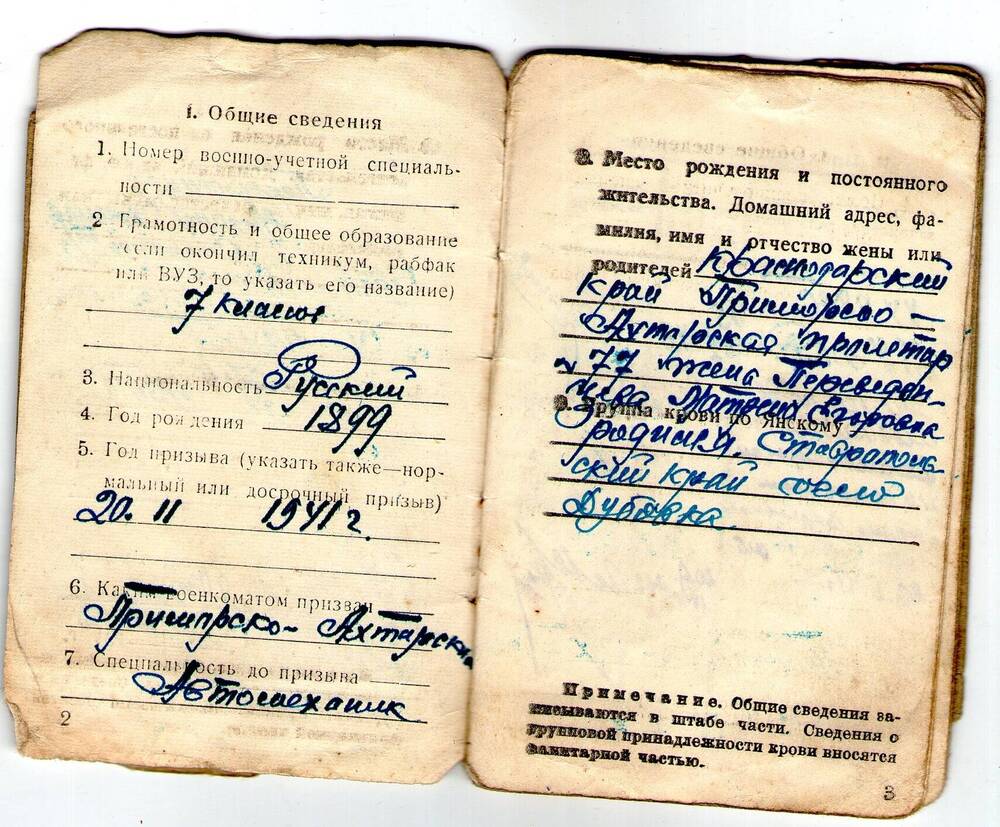 I. Общие сведения
1. Номер военно-учетной специаль-
ности
2. Грамотность и общее образование
(если окончил техникум, рабфак
или ВУЗ, то указать его название)
7 классов
3. Национальность Русский
4. Год рождения 1899
5. Год призыва (указать также—нор-
мальный или досрочный призыв)
20. II 1941 г.
6. Каким военкоматом призван
Приморско-Ахтарским
7. Специальность до призыва
Автомеханик
2
8. Место рождения и постоянного
жительства. Домашний адрес, фа-
милия, имя и отчество жены или
родителей Краснодарский
край Приморско-
Ахтарская
77 жена
Егоровна
9. Группа крови по Янскому
родился Ставрополь
ский край село
Дубовка
Примечание. Общие сведения за-
писываются в штабе части. Сведения о
групповой принадлежности крови вносятся
санитарной частью.
3